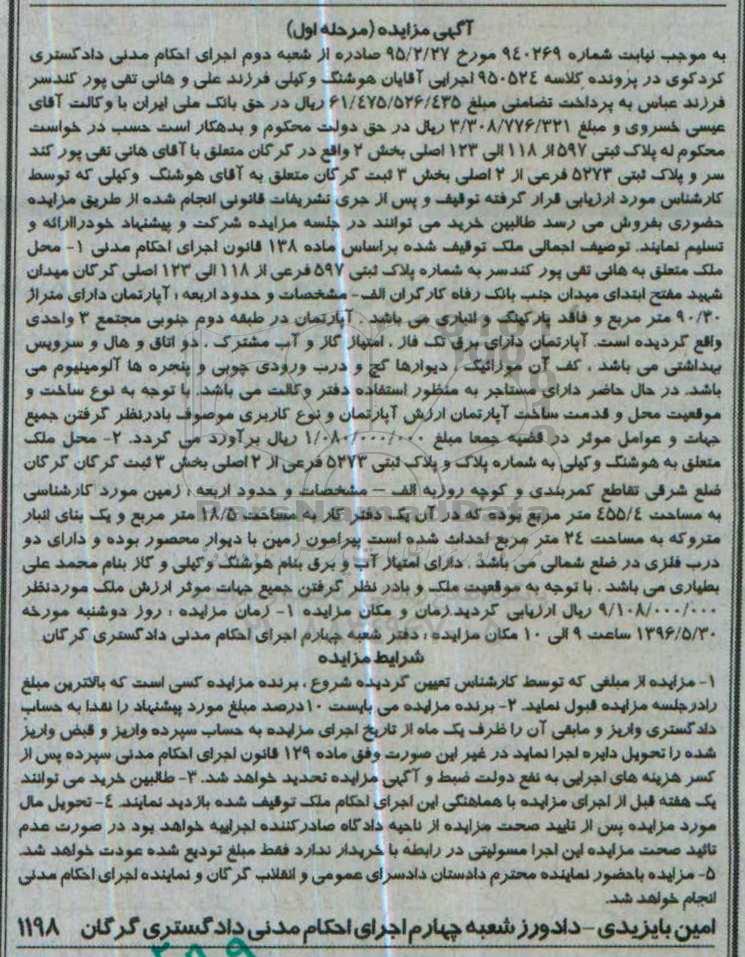 آگهی مزایده (مرحله اول)
به موجب نیابت شماره ۹٤۰۲۶۹ مورخ ۹۵/۲/۲۷ صادره از شعبه دوم اجرای احکام مدنی دادگستری
کردکوی در پرونده کلاسه ۹۵۰۵۲٤ اجرایی آقایان هوشنگ وکیلی فرزند علی و هانی تقی پور کندسر
فرزند عباس به پرداخت تضامنی مبلغ ۶۱/٤۷۵/۵۲۶/٤۳۵ ریال در حق بانک ملی ایران با وکالت آقای
عیسی خسروی و مبلغ ۳/۳۰۸/۷۷۶/۳۲۱ ریال در حق دولت محکوم و بدهکار است حسب در خواست
محکوم له پلاک ثبتی ۵۹۷ از ۱۱۸ الی ۱۲۳ اصلی بخش ۲ واقع در گرگان متعلق با آقای هانی تقی پور کند
سر و پلاک ثبتی ۵۲۷۳ فرعی از ۲ اصلی بخش ۳ ثبت گرگان متعلق به آقای هوشنگ وکیلی که توسط
کارشناس مورد ارزیابی قرار گرفته توقیف و پس از جری تشریفات قانونی انجام شده از طریق مزایده
حضوری بفروش می رسد طالبین خرید می توانند در جلسه مزایده شرکت و پیشنهاد خودراارائه و
تسلیم نمایند. توصیف اجمالی ملک توقیف شده براساس ماده ۱۳۸ قانون اجرای احکام مدنی ۱- محل
ملک متعلق به هانی تقی پور کندسر به شماره پلاک ثبتی ۵۹۷ فرعی از ۱۱۸ الی ۱۲۳ اصلی گرگان میدان
شهید مفتح ابتدای میدان جنب بانک رفاه کارگران الف- مشخصات و حدود اربعه : آپارتمان دارای متراژ
۹۰/۳۰ متر مربع و فاقد پارکینگ و انباری می باشد . آپارتمان در طبقه دوم جنوبی مجتمع ۳ واحدی
واقع گردیده است. آپارتمان دارای برق تک فاز ، امتیاز گاز و آب مشترک ، دو اتاق و هال و سرویس
بهداشتی می باشد ، کف آن موزائیک ، دیوارها گچ و درب ورودی چوبی و پنجره ها آلومینیوم می
باشد. در حال حاضر دارای مستاجر به منظور استفاده دفتر وکالت می باشد. با توجه به نوع ساخت و
موقعیت محل و قدمت ساخت آپارتمان ارزش آپارتمان و نوع کاربری موصوف بادرنظر گرفتن جمیع
جهات و عوامل موثر در قضیه جمعا مبلغ ۱/۰۸۰/۰۰۰/۰۰۰ ریال برآورد می گردد. ۲- محل ملک
متعلق به هوشنگ وکیلی به شماره پلاک و پلاک ثبتی ۵۲۷۳ فرعی از ۲ اصلی بخش ۳ ثبت گرگان گرگان
ضلع شرقی تقاطع کمربندی و کوچه روزبه الف – مشخصات و حدود اربعه : زمین مورد کارشناسی
به مساحت ٤۵۵/٤ متر مربع بوده که در آن یک دفتر کار به مساحت ۱۸/۵ متر مربع و یک بنای انبار
متروکه به مساحت ۲٤ متر مربع احداث شده است پیرامون زمین با دیوار محصور بوده و دارای دو
درب فلزی در ضلع شمالی می باشد . دارای امتیاز آب و برق بنام هوشنگ وکیلی و گاز بنام محمد علی
بطیاری می باشد . با توجه به موقعیت ملک و بادر نظر گرفتن جمیع جهات موثر ارزش ملک موردنظر
۹/۱۰۸/۰۰۰/۰۰۰ ریال ارزیابی گردید.زمان و مکان مزایده ۱- زمان مزایده : روز دوشنبه مورخه
۱۳۹۶/۵/۳۰ ساعت ۹ الی ۱۰ مکان مزایده : دفتر شعبه چهارم اجرای احکام مدنی دادگستری گرگان
شرایط مزایده
۱- مزایده از مبلغی که توسط کارشناس تعیین گردیده شروع ، برنده مزایده کسی است که بالاترین مبلغ
رادرجلسه مزایده قبول نماید. ۲- برنده مزایده می بایست ۱۰درصد مبلغ مورد پیشنهاد را نقدا به حساب
دادگستری واریز و مابقی آن را ظرف یک ماه از تاریخ اجرای مزایده به حساب سپرده واریز و قبض واریز
شده را تحویل دایره اجرا نماید در غیر این صورت وفق ماده ۱۲۹ قانون اجرای احکام مدنی سپرده پس از
کسر هزینه های اجرایی به نفع دولت ضبط و آگهی مزایده تجدید خواهد شد. ۳- طالبین خرید می توانند
یک هفته قبل از اجرای مزایده با هماهنگی این اجرای احکام ملک توقیف شده بازدید نمایند. ٤- تحویل مال
مورد مزایده پس از تایید صحت مزایده از ناحیه دادگاه صادرکننده اجراییه خواهد بود در صورت عدم
تائید صحت مزایده این اجرا مسولیتی در رابطه با خریدار ندارد فقط مبلغ تودیع شده عودت خواهد شد.
۵- مزایده باحضور نماینده محترم دادستان دادسرای عمومی و انقلاب گرگان و نماینده اجرای احکام مدنی
انجام خواهد شد.
امین بایزیدی – دادورز شعبه چهارم اجرای احکام مدنی دادگستری گرگان ۱۱۹۸